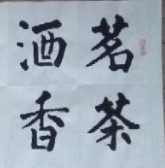 茗茶
酒香